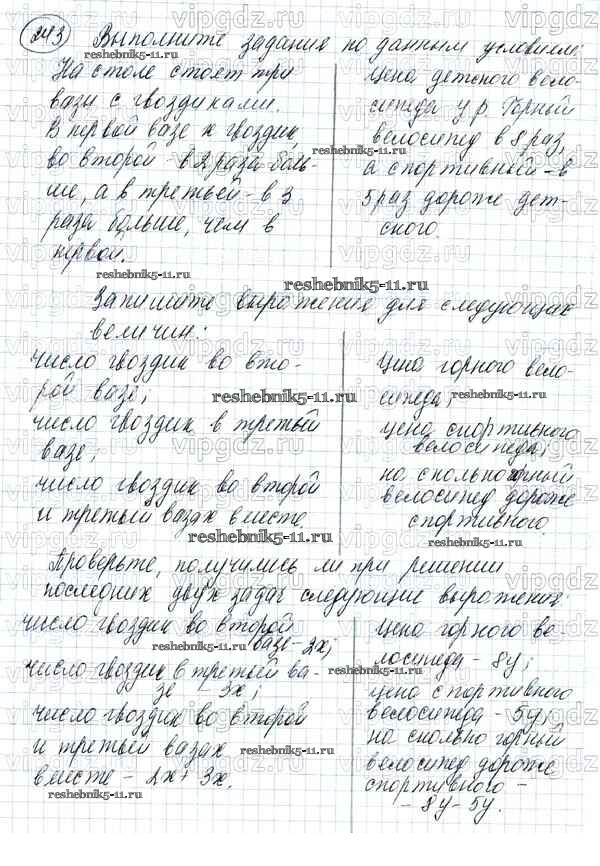 243 Выполните задания по данным условиям:
На столе стоят три
вазы с гвоздиками.
В первой вазе х гвоздик,
во второй - в 2 раза боль-
ше, а в третьей - в 3
раза больше, чем в
первой.
Цена детского вело-
сипеда у р. Горный
велосипед в 8 раз,
а спортивный - в
5 раз дороже дет-
ского.
Запишите выражения для следующих
величин:
число гвоздик во вто-
рой вазе;
число гвоздик в третьей
вазе;
число гвоздик во второй
и третьей вазах вместе.
Цена горного вело-
сипеда;
цена спортивного
велосипеда;
на сколько горный
велосипед дороже
спортивного.
Проверьте, получились ли при решении
последних двух задач следующие выражения:
число гвоздик во второй
вазе - 2х;
число гвоздик в третьей ва-
зе - 3х;
число гвоздик во второй
и третьей вазах
вместе - 2х + 3х.
Цена горного ве-
лосипеда - 8у;
цена спортивного
велосипеда - 5у;
на сколько горный
велосипед дороже
спортивного -
- 8у - 5у.
vipgdz.ru
reshebnik5-11.ru